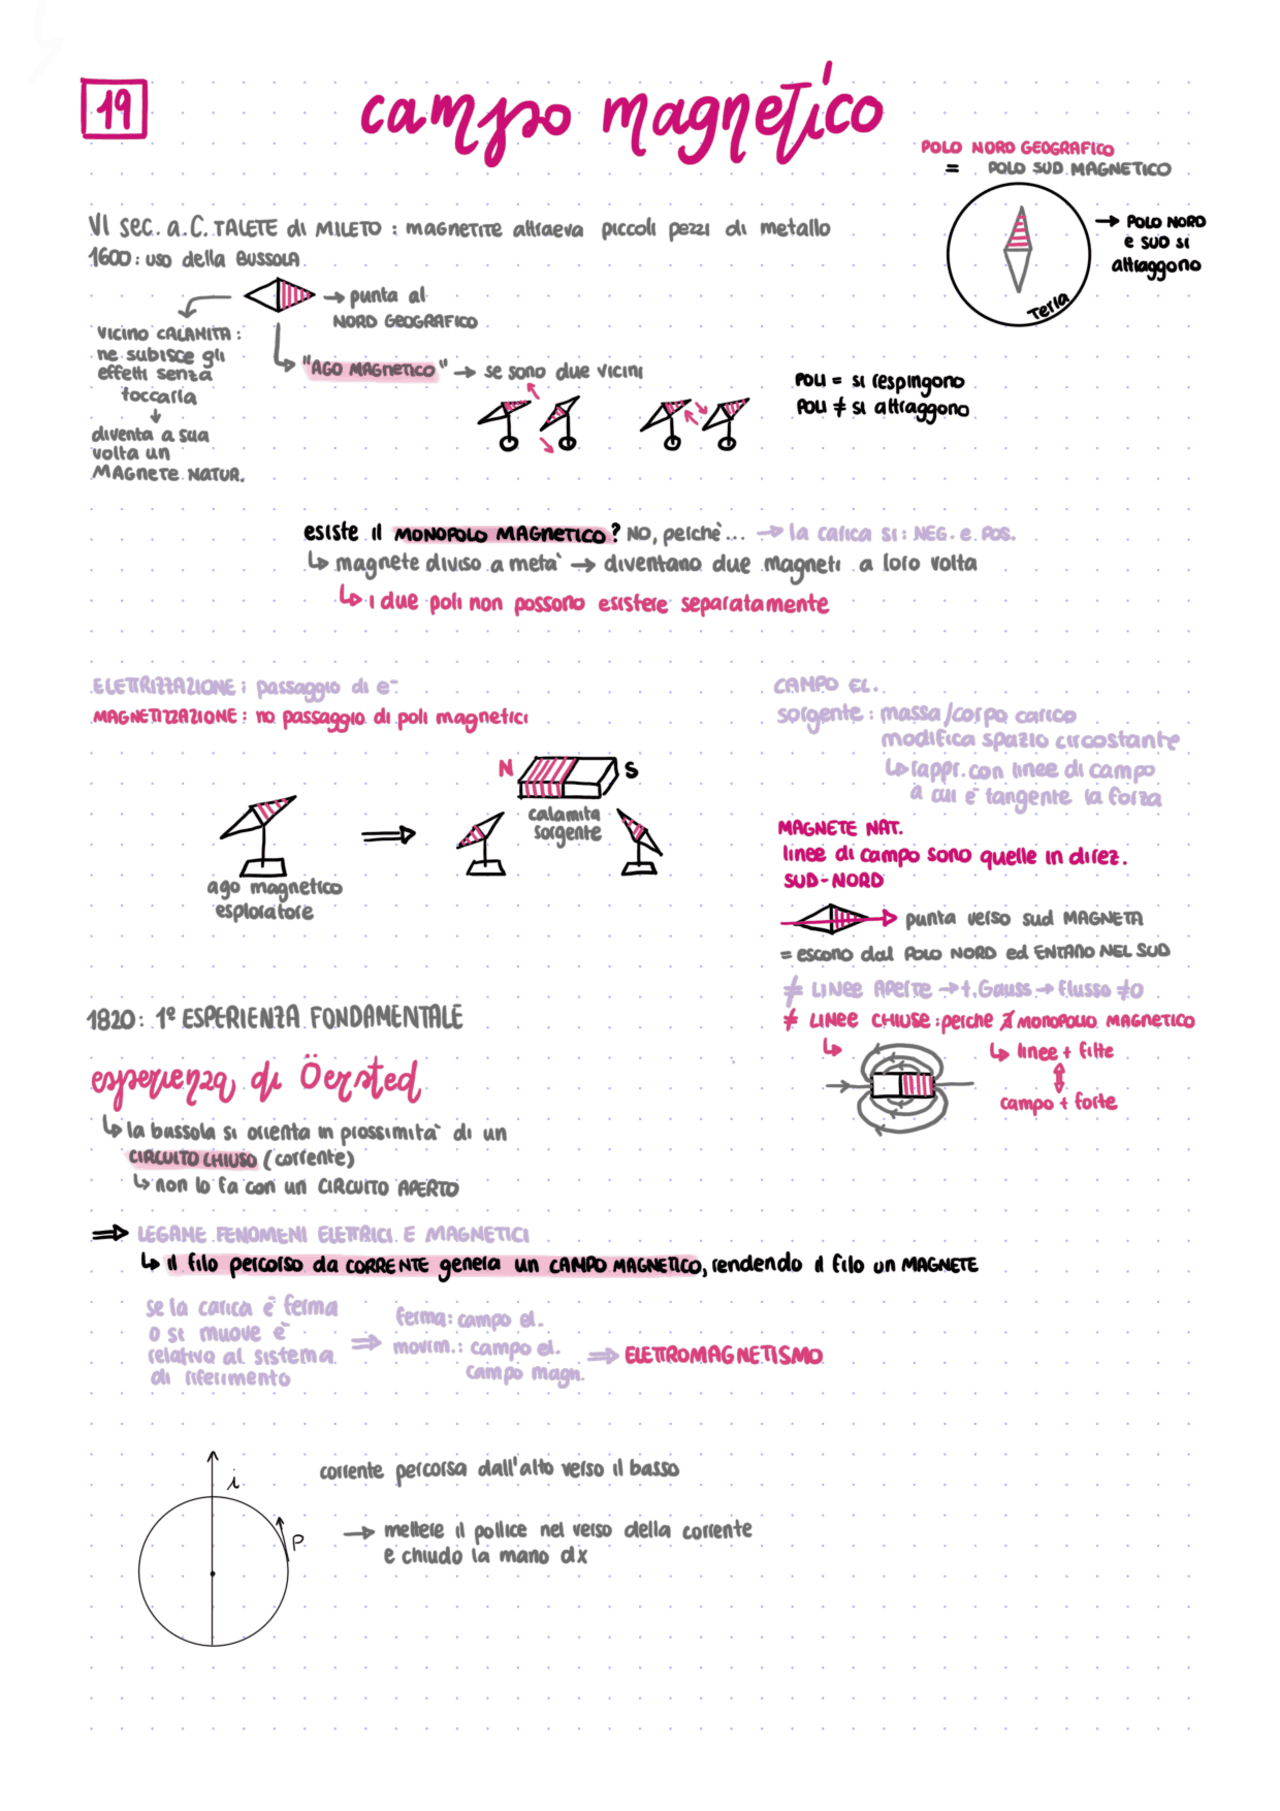 19
campo magnetico
POLO NORD GEOGRAFICO
= POLO SUD MAGNETICO
→ POLO NORD
e SUD si
attraggono
Terra
VI sec. a.C. TALETE di MILETO : magnetite attraeva piccoli pezzi di metallo
1600: uso della BUSSOLA
→ punta al
NORD GEOGRAFICO
vicino CALAMITA :
ne subisce gli
effetti senza
toccarla
↓
diventa a sua
volta un
MAGNETE NATUR.
"AGO MAGNETICO" → se sono due vicini
POLI = si respingono
POLI ≠ si attraggono
esiste il MONOPOLO MAGNETICO? NO, perchè... → la carica si: NEG. e POS.
↳ magnete diviso a metà → diventano due magneti a loro volta
↳ i due poli non possono esistere separatamente
ELETTRIZZAZIONE: passaggio di e⁻
MAGNETIZZAZIONE: no passaggio di poli magnetici
N
S
calamita
sorgente
⇒
ago magnetico
esploratore
CAMPO EL.
sorgente : massa/corpo carico
modifica spazio circostante
↳ rappr. con linee di campo
a cui è tangente la forza
MAGNETE NAT.
linee di campo sono quelle in direz.
SUD-NORD
punta verso sud MAGNETA
= escono dal POLO NORD ed ENTANO NEL SUD
≠ LINEE APERTE → t. Gauss → flusso ≠0
≠ LINEE CHIUSE : perche ∄ MONOPOLIO MAGNETICO
↳
↳ linee + fitte
⇕
campo + forte
1820: 1º ESPERIENZA FONDAMENTALE
esperienza di Öersted
↳ la bassola si orienta in prossimità di un
CIRCUITO CHIUSO (corrente)
↳ non lo fa con un CIRCUITO APERTO
⇒ LEGAME FENOMENI ELETTRICI E MAGNETICI
↳ il filo percorso da CORRENTE genera un CAMPO MAGNETICO, rendendo il filo un MAGNETE
se la carica è ferma
o si muove è
relativo al sistema
di riferimento
⇒
ferma: campo el.
movim.: campo el.
campo magn.
⇒ ELETTROMAGNETISMO
i
P
corrente percorsa dall'alto verso il basso
→ mettere il pollice nel verso della corrente
e chiudo la mano dx